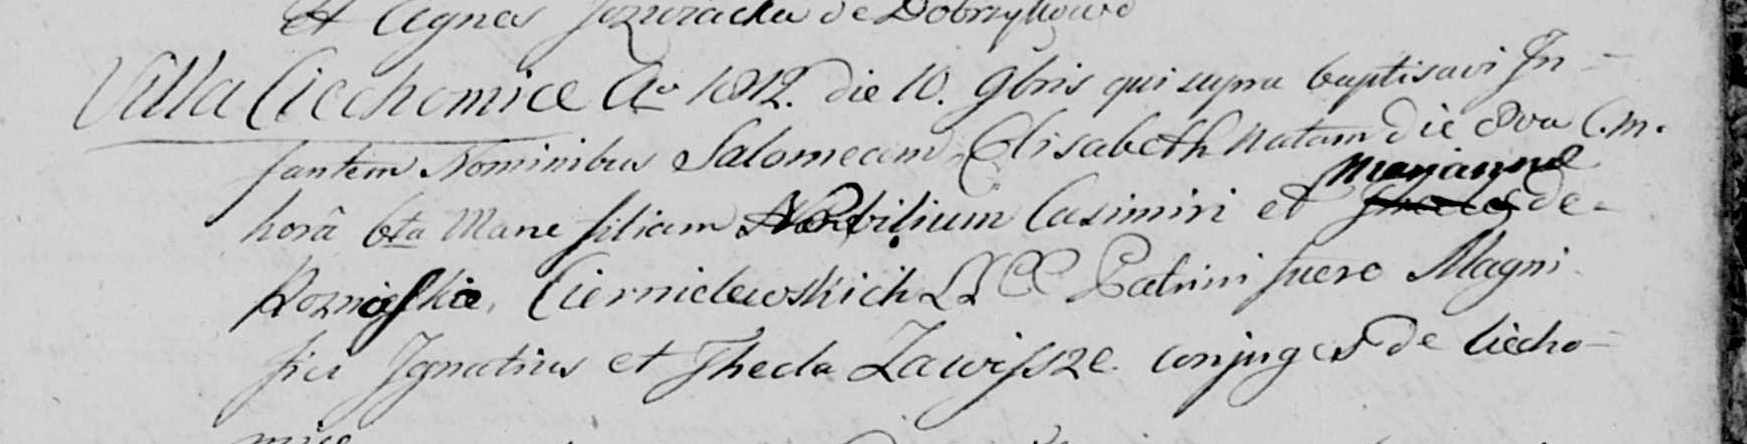 Et Agnes de Dobrzykowo
Villa Ciechomice Ao 1812. die 10. 9bris qui supra baptisavi In-
fantem Nominibus Salomeam, Elisabeth Natam die 8va C. M.
horâ 6ta Mane filiam Nobilium Casimiri et Marianna de
Cierniclewskich LL CC Patrini fuere Magni
fici Ignatius et Thecla Zawisze conjuges de Ciecho-
mice